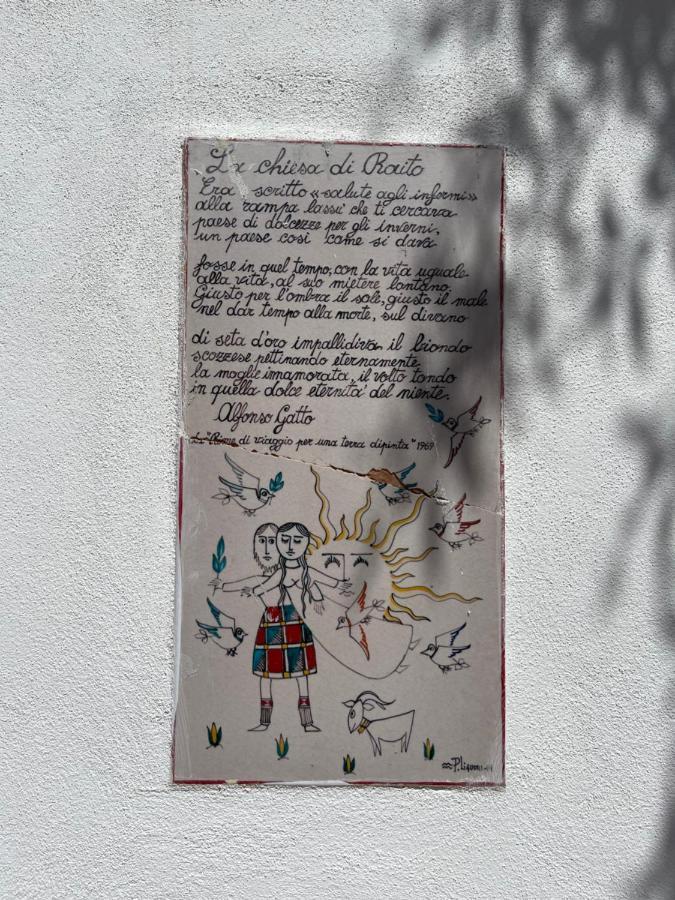 La chiesa di Raito
Era scritto «salute agli infermi»
alla rampa lassu' che ti cercava
paese di dolcezze per gli inverni,
un paese così come si dava
fosse in quel tempo, con la vita uguale
alla vita, al suo mietere lontano.
Giusto per l'ombra il sole, giusto il male
nel dar tempo alla morte, sul divano
di seta d'oro impallidiva il biondo
scozzese pettinando eternamente
la moglie innamorata, il volto tondo
in quella dolce eternita' del niente.
Alfonso Gatto
da "Rime di viaggio per una terra dipinta" 1969